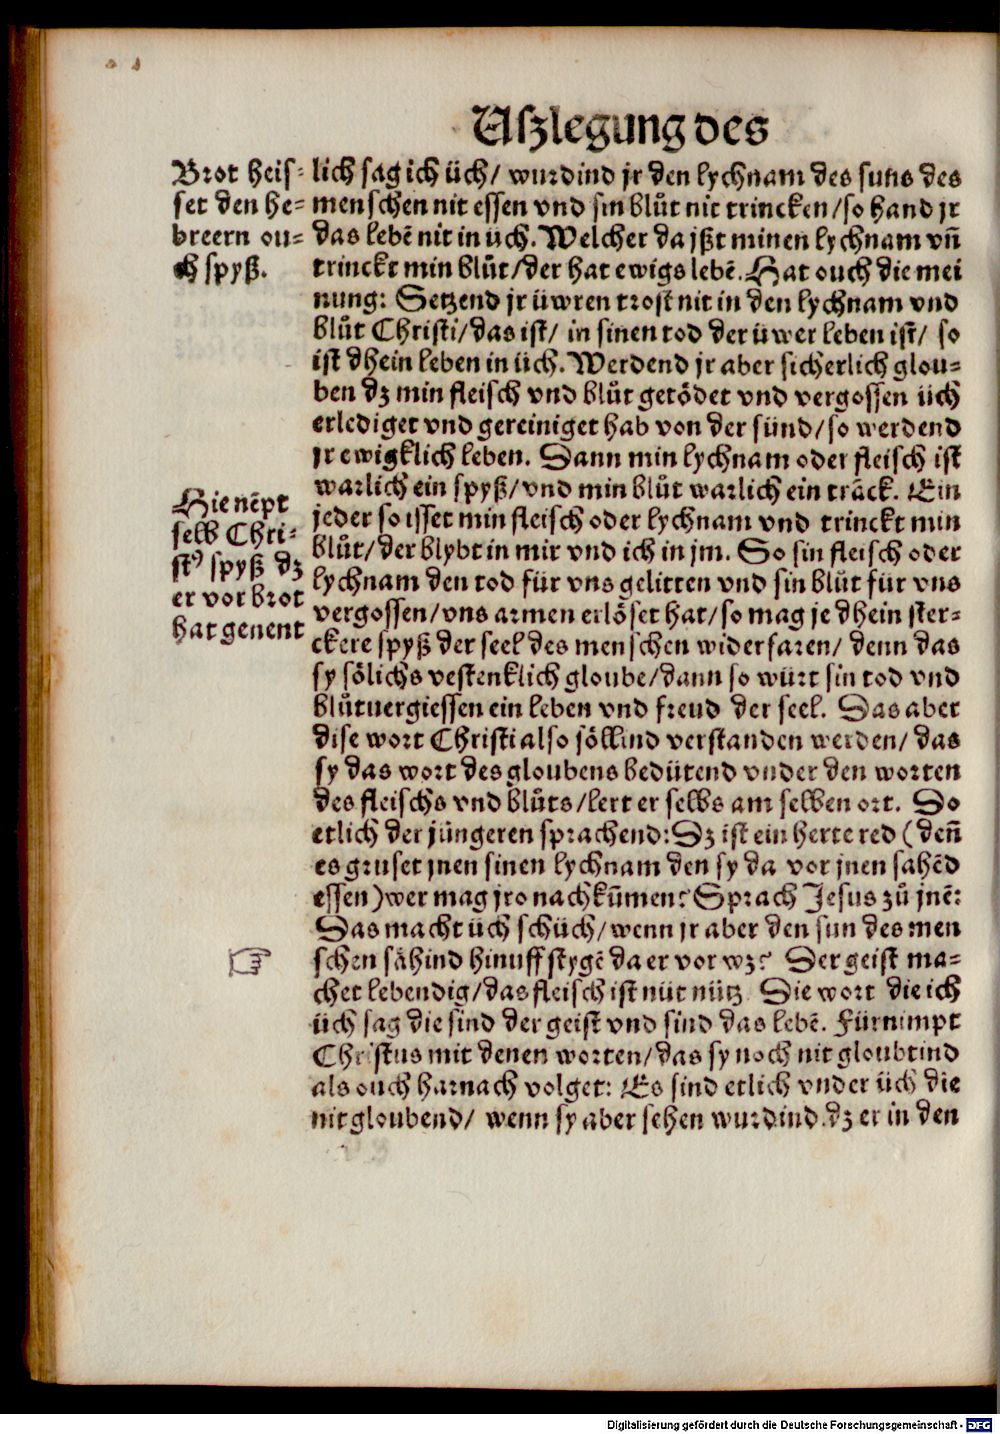 Uſzlegung des
Brot heiſ⸗
ſet den he⸗
breern ou⸗
ch ſpyß.
lich ſag ich üch/ wurdind jr den lychnam des ſuns des
menſchen nit eſſen vnd ſin blůt nit trincken/ſo hand jr
das lebē nit in üch. Welcher da jßt minen lychnam vn̄
trinckt min blůt/der hat ewigs lebē. Hat ouch die mei
nung: Setzend jr üwren troſt nit in den lychnam vnd
blůt Chriſti/das iſt/ in ſinen tod der üwer leben iſt/ ſo
iſt dhein leben in üch. Werdend jr aber ſicherlich glou⸗
ben dz min fleiſch vnd blůt getödet vnd vergoſſen üch
erlediget vnd gereiniget hab von der ſünd/ſo werdend
jr ewigklich leben. Dann min lychnam oder fleiſch iſt
warlich ein ſpyß/vnd min blůt warlich ein trāck. Ein
jeder ſo iſſet min fleiſch oder lychnam vnd trinckt min
blůt/der blybt in mir vnd ich in jm. So ſin fleiſch oder
lychnam den tod für vns gelitten vnd ſin blůt für vns
vergoſſen/vns armen erlöſet hat/ſo mag je dhein ſter⸗
ckere ſpyß der ſeel des menſchen widerfaren/ denn das
ſy ſölichs veſtenklich gloube/dann ſo würt ſin tod vnd
blůtuergieſſen ein leben vnd freud der ſeel. Das aber
diſe wort Chriſti alſo ſöllind verſtanden werden/ das
ſy das wort des gloubens bedütend vnder den worten
des fleiſchs vnd blůts/lert er ſelbs am ſelben ort. Do
etlich der jüngeren ſprachend:Dz iſt ein herte red (den̄
es gruſet jnen ſinen lychnam den ſy da vor jnen ſahēd
eſſen)wer mag jro nachkūmen? Sprach Jeſus zů jnē:
Das macht üch ſchüch/wenn jr aber den ſun des men
ſchen ſähind hinuff ſtygē da er vor wz? Der geiſt ma⸗
chet lebendig/das fleiſch iſt nüt nütz Die wort die ich
üch ſag die ſind der geiſt vnd ſind das lebē. Fürnimpt
Chriſtus mit denen worten/das ſy noch nit gloubtind
als ouch harnach volget: Es ſind etlich vnder üch die
nit gloubend/ wenn ſy aber ſehen wurdind.dz er in den
Hie nēpt
ſelb Chri⸗
ſtꝰ ſpyß dz
er vor brot
hat genent
Digitalisierung gefördert durch die Deutsche Forschungsgemeinschaft - DFG